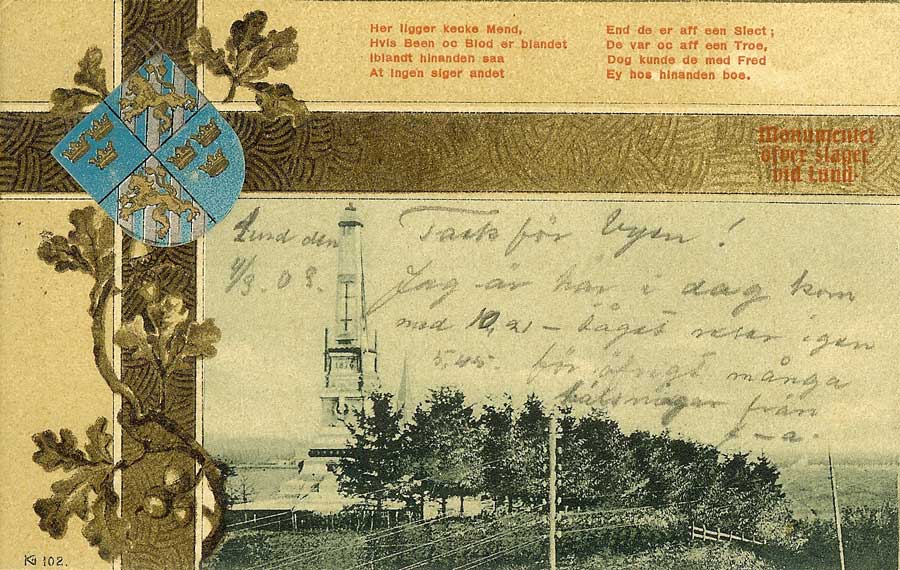 Her ligger kecke Mend,
Hvis Been oc Blod er blandet
Iblandt hinanden saa
At ingen siger andet
End de er aff een Slect;
De var oc aff een Troe,
Dog kunde de med Fred
Ey hos hinanden boe.
Monumentet
öfver slaget
vid Lund
Lund den
4/3.03.
Tack för vyen!
Jag är här i dag kom
med 10,21 – tåget reser igen
5.45. för öfrigt många
hälsningar från
K 102.